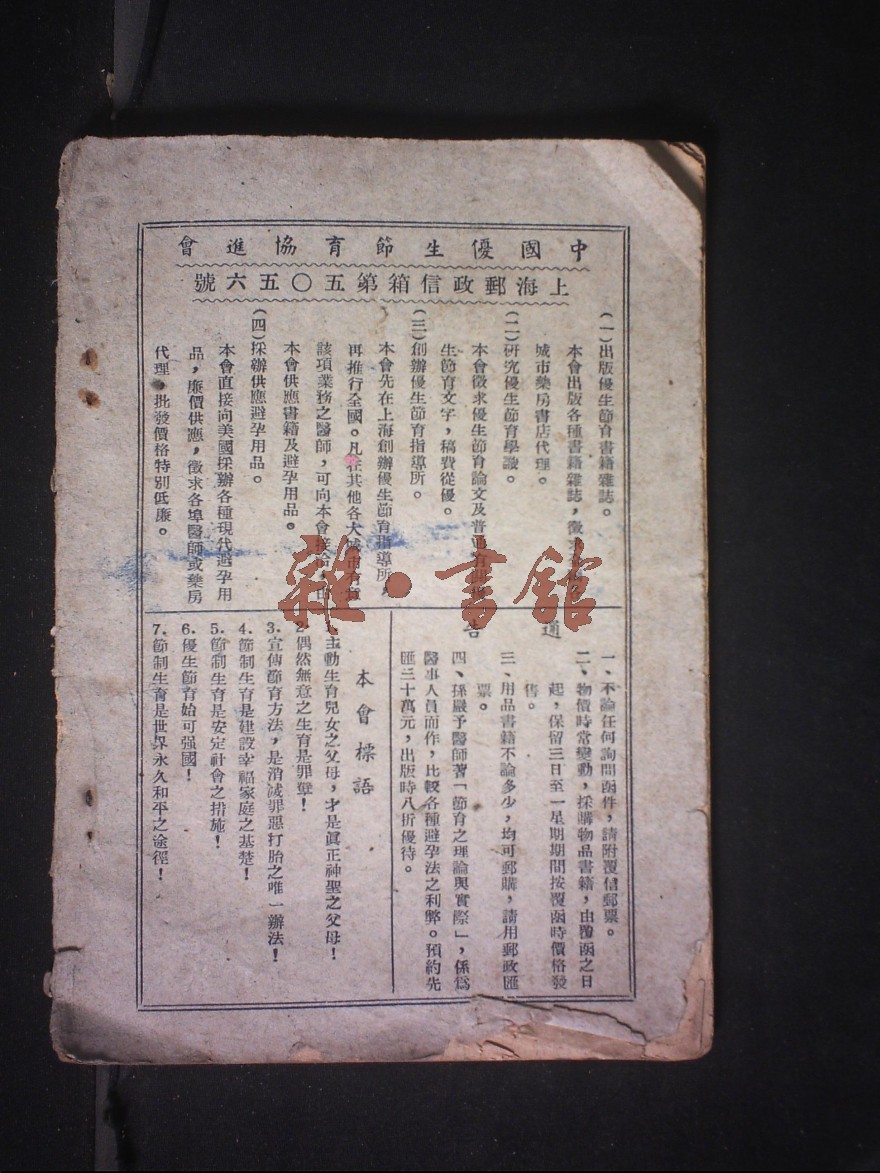 中國優生節育協進會
上海郵政信箱第五〇五六號
(一)出版優生節育書籍雜誌。
本會出版各種書籍雜誌,徵求
城市藥房書店代理。
(二)研究優生節育學識。
本會徵求優生節育論文及普通
生節育文字,稿費從優。
(三)創辦優生節育指導所。
本會先在上海創辦優生節育指導所,
再推行全國。凡在其他各大城市有
該項業務之醫師,可向本會接洽
本會供應書籍及避孕用品。
(四)採辦供應避孕用品。
本會直接向美國採辦各種現代避孕用
品,廉價供應,徵求各埠醫師或藥房
代理,批發價格特別低廉。
通告
一、不論任何詢問函件,請附覆信郵票。
二、物價時常變動,採購物品書籍,由覆函之日
起,保留三日至一星期期間按覆函時價格發
售。
三、用品書籍不論多少,均可郵購,請用郵政匯
票。
四、孫嚴予醫師著「節育之理論與實際」,係為
醫事人員而作,比較各種避孕法之利弊。預約先
匯三十萬元,出版時八折優待。
本會標語
1.主動生育兒女之父母,才是眞正神聖之父母!
2.偶然無意之生育是罪孽!
3.宣傳節育方法,是消滅罪惡打胎之唯一辦法!
4.節制生育是建設幸福家庭之基楚!
5.節制生育是安定社會之措施!
6.優生節育始可强國!
7.節制生育是世界永久和平之途徑!
雜·書館